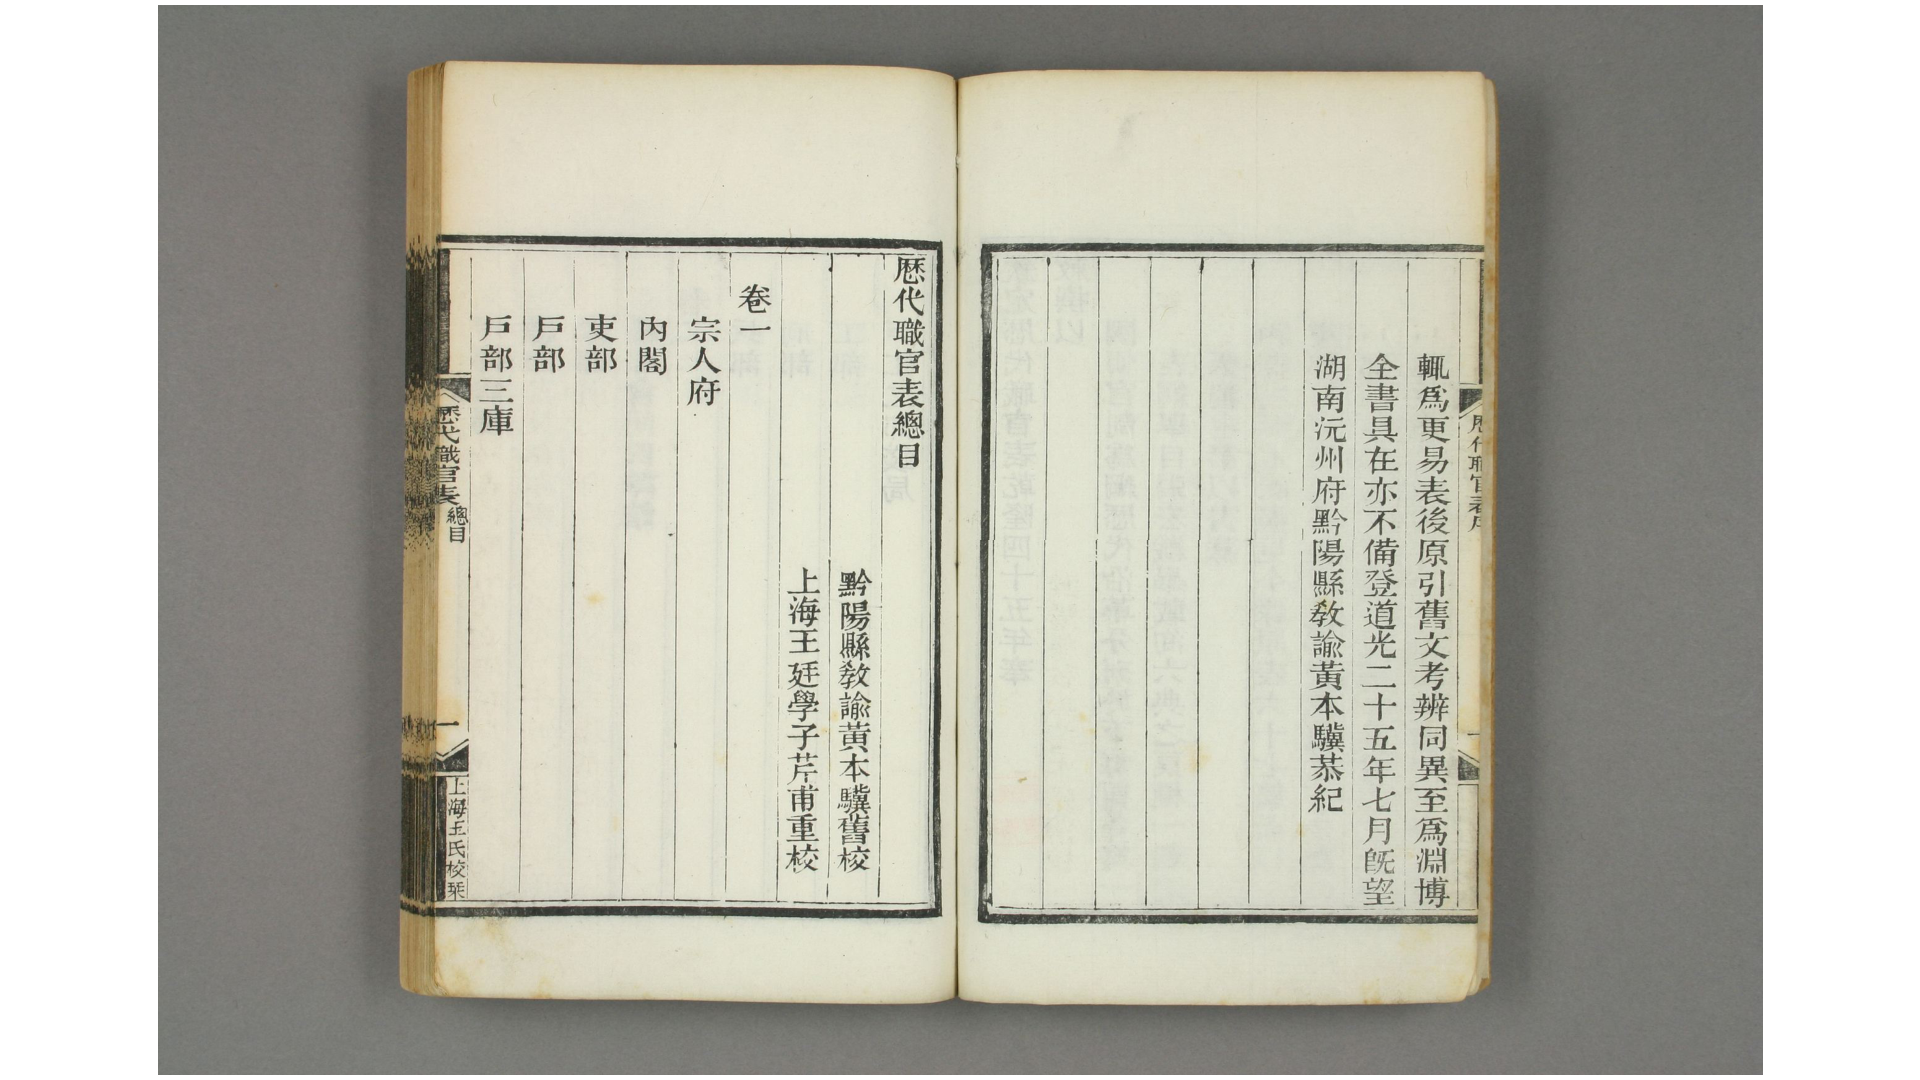 輒爲更易表後原引舊文考辨同異至爲淵博
全書具在亦不備登道光二十五年七月旣望
湖南沅州府黔陽縣敎諭黃本驥恭紀
歷代職官表總目
黔陽縣敎諭黃本驥舊校
上海王廷學子芹甫重校
卷一
宗人府
內閣
吏部
戶部
戶部三庫
歷代職官表
總目
一
上海王氏校栞